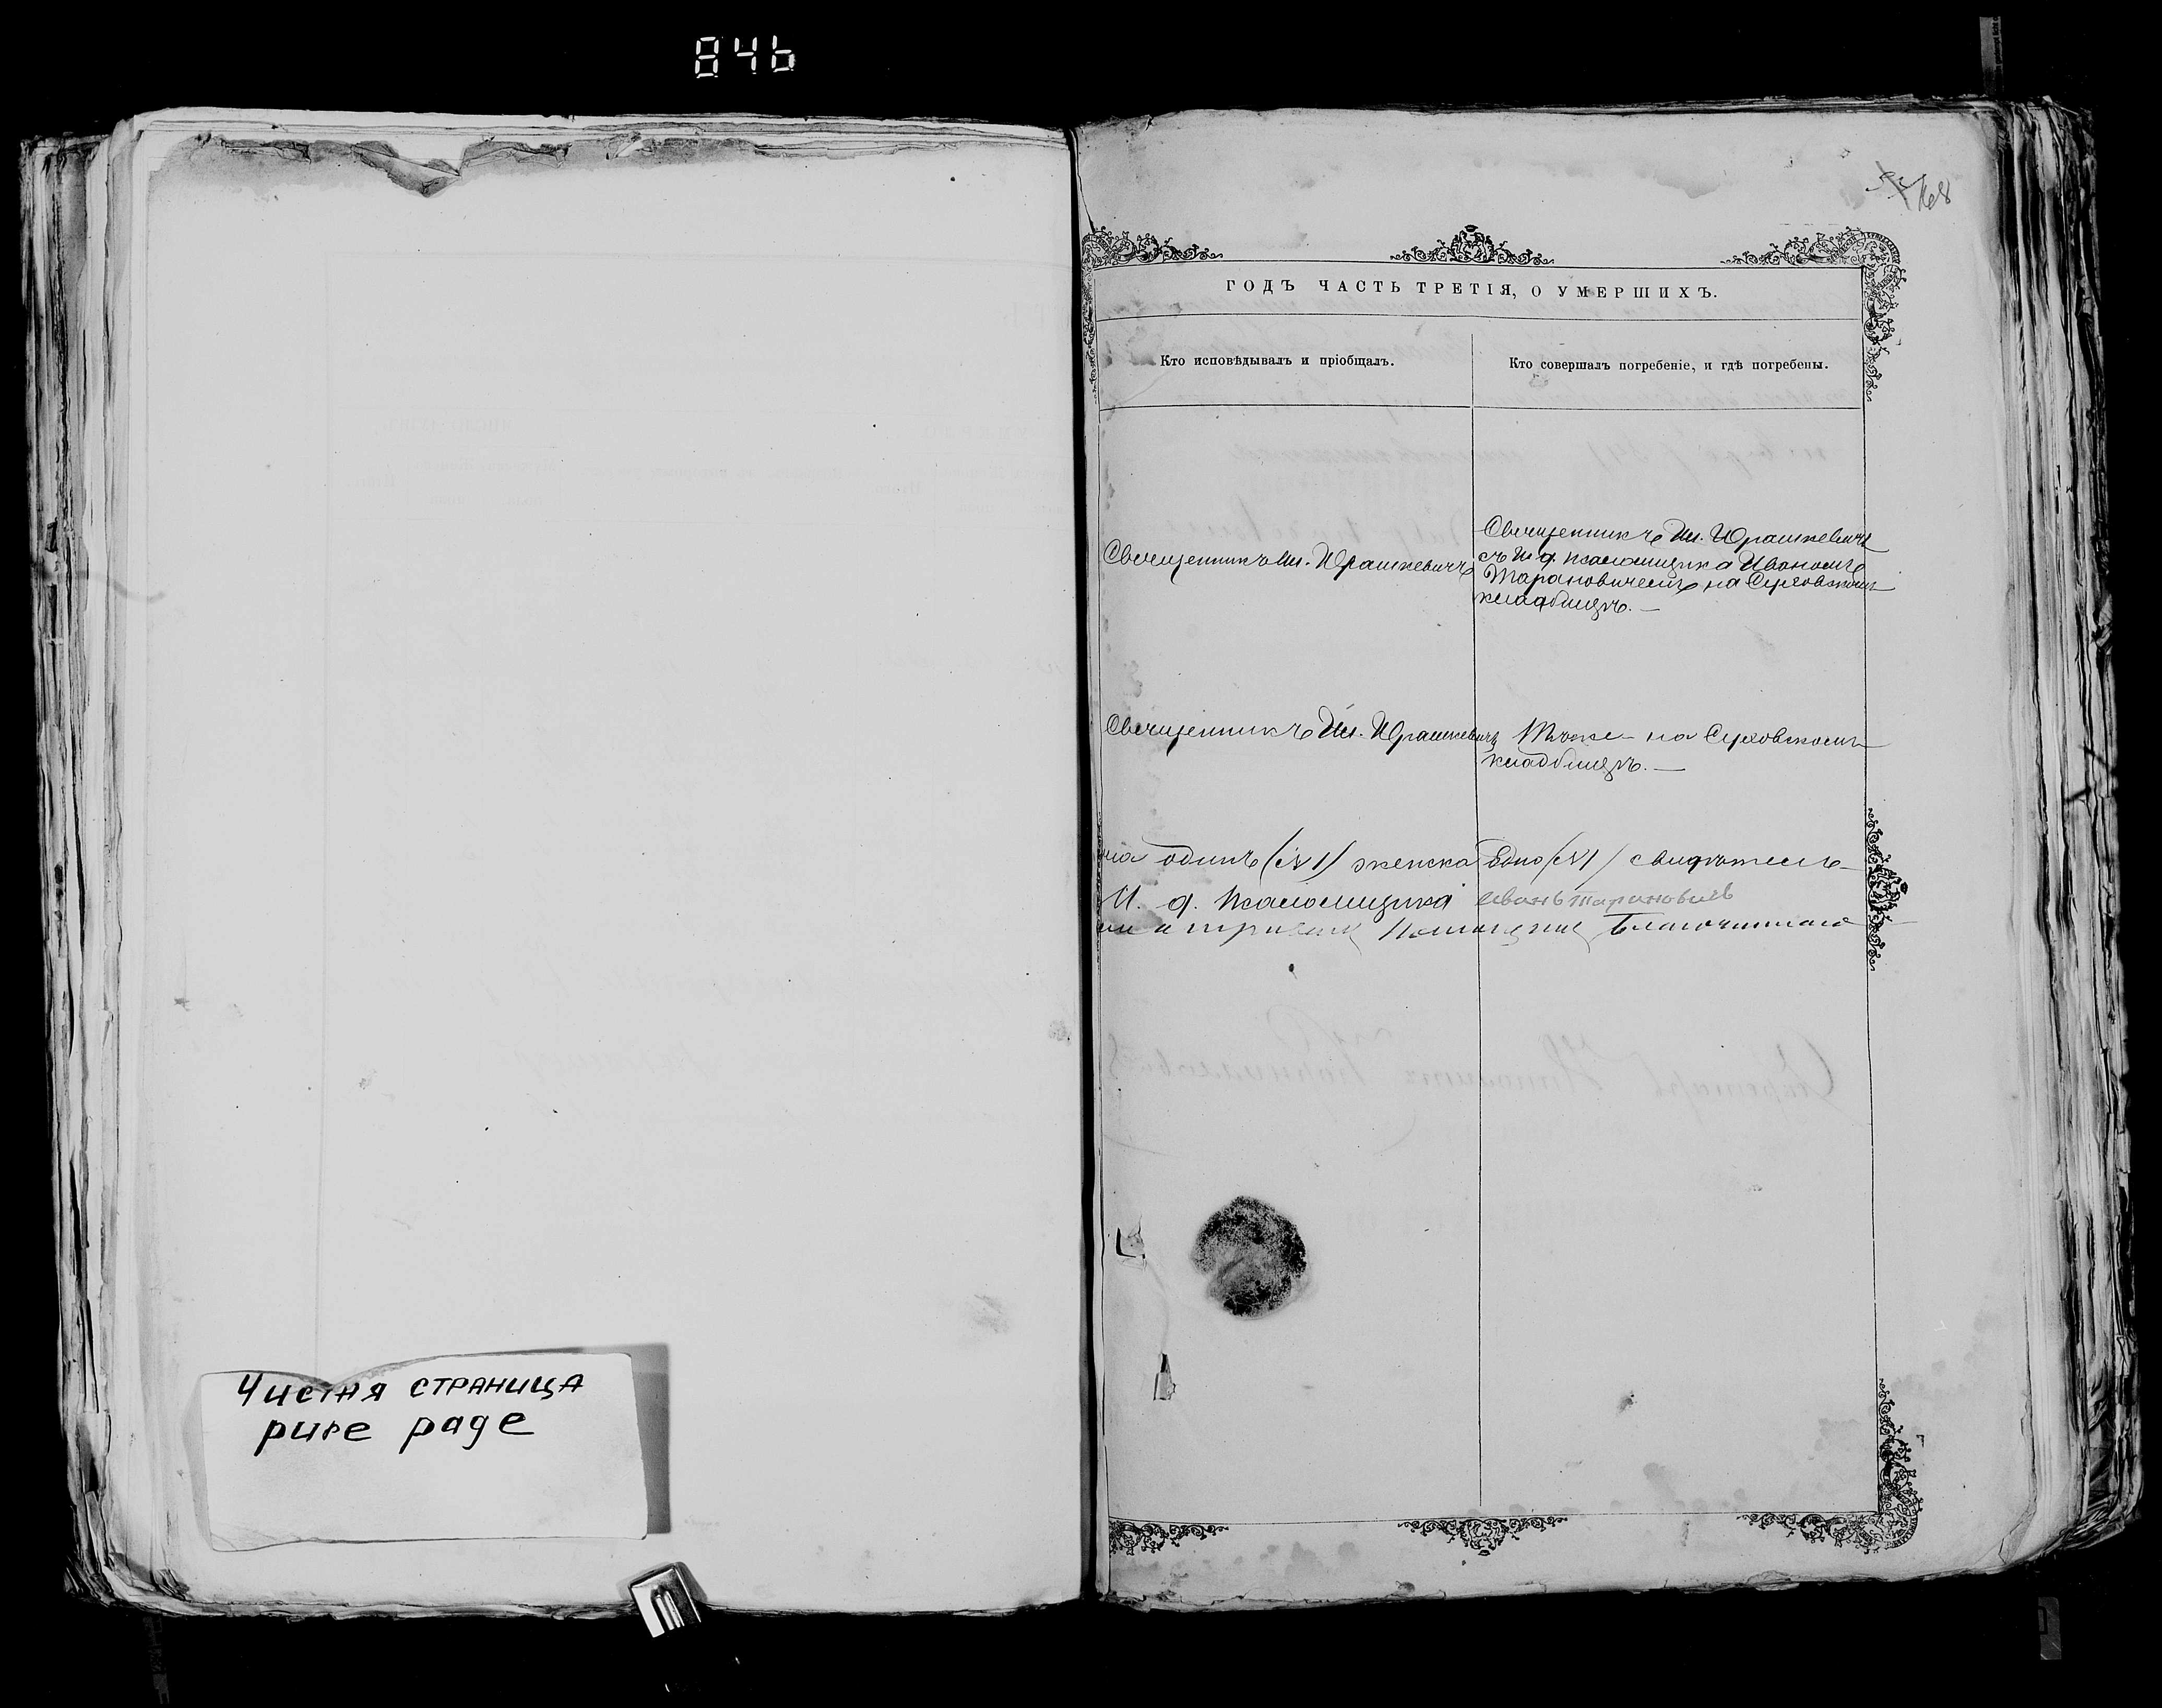 846
168
ГОДЪ ЧАСТЬ ТРЕТІЯ, О УМЕРШИХЪ.
Кто исповѣдывалъ и пріобщалъ.
Кто совершалъ погребеніе, и гдѣ погребены.
Священникъ Ил. Юрашкевичъ
Священникъ Ил. Юрашкевичъ
съ И. д. псаломщика Иваномъ
Тарановичемъ на Серговскомъ
кладбищѣ. —
Священникъ Ил. Юрашкевичъ
Тоже – на Серговскомъ
кладбищѣ. —
одинъ (№ 1) женска Одно (№ 1) свидѣтель
И. д. Псаломщика Иванъ Тарановичъ
Помощник Благочиннаго
Чистая страница
pure page